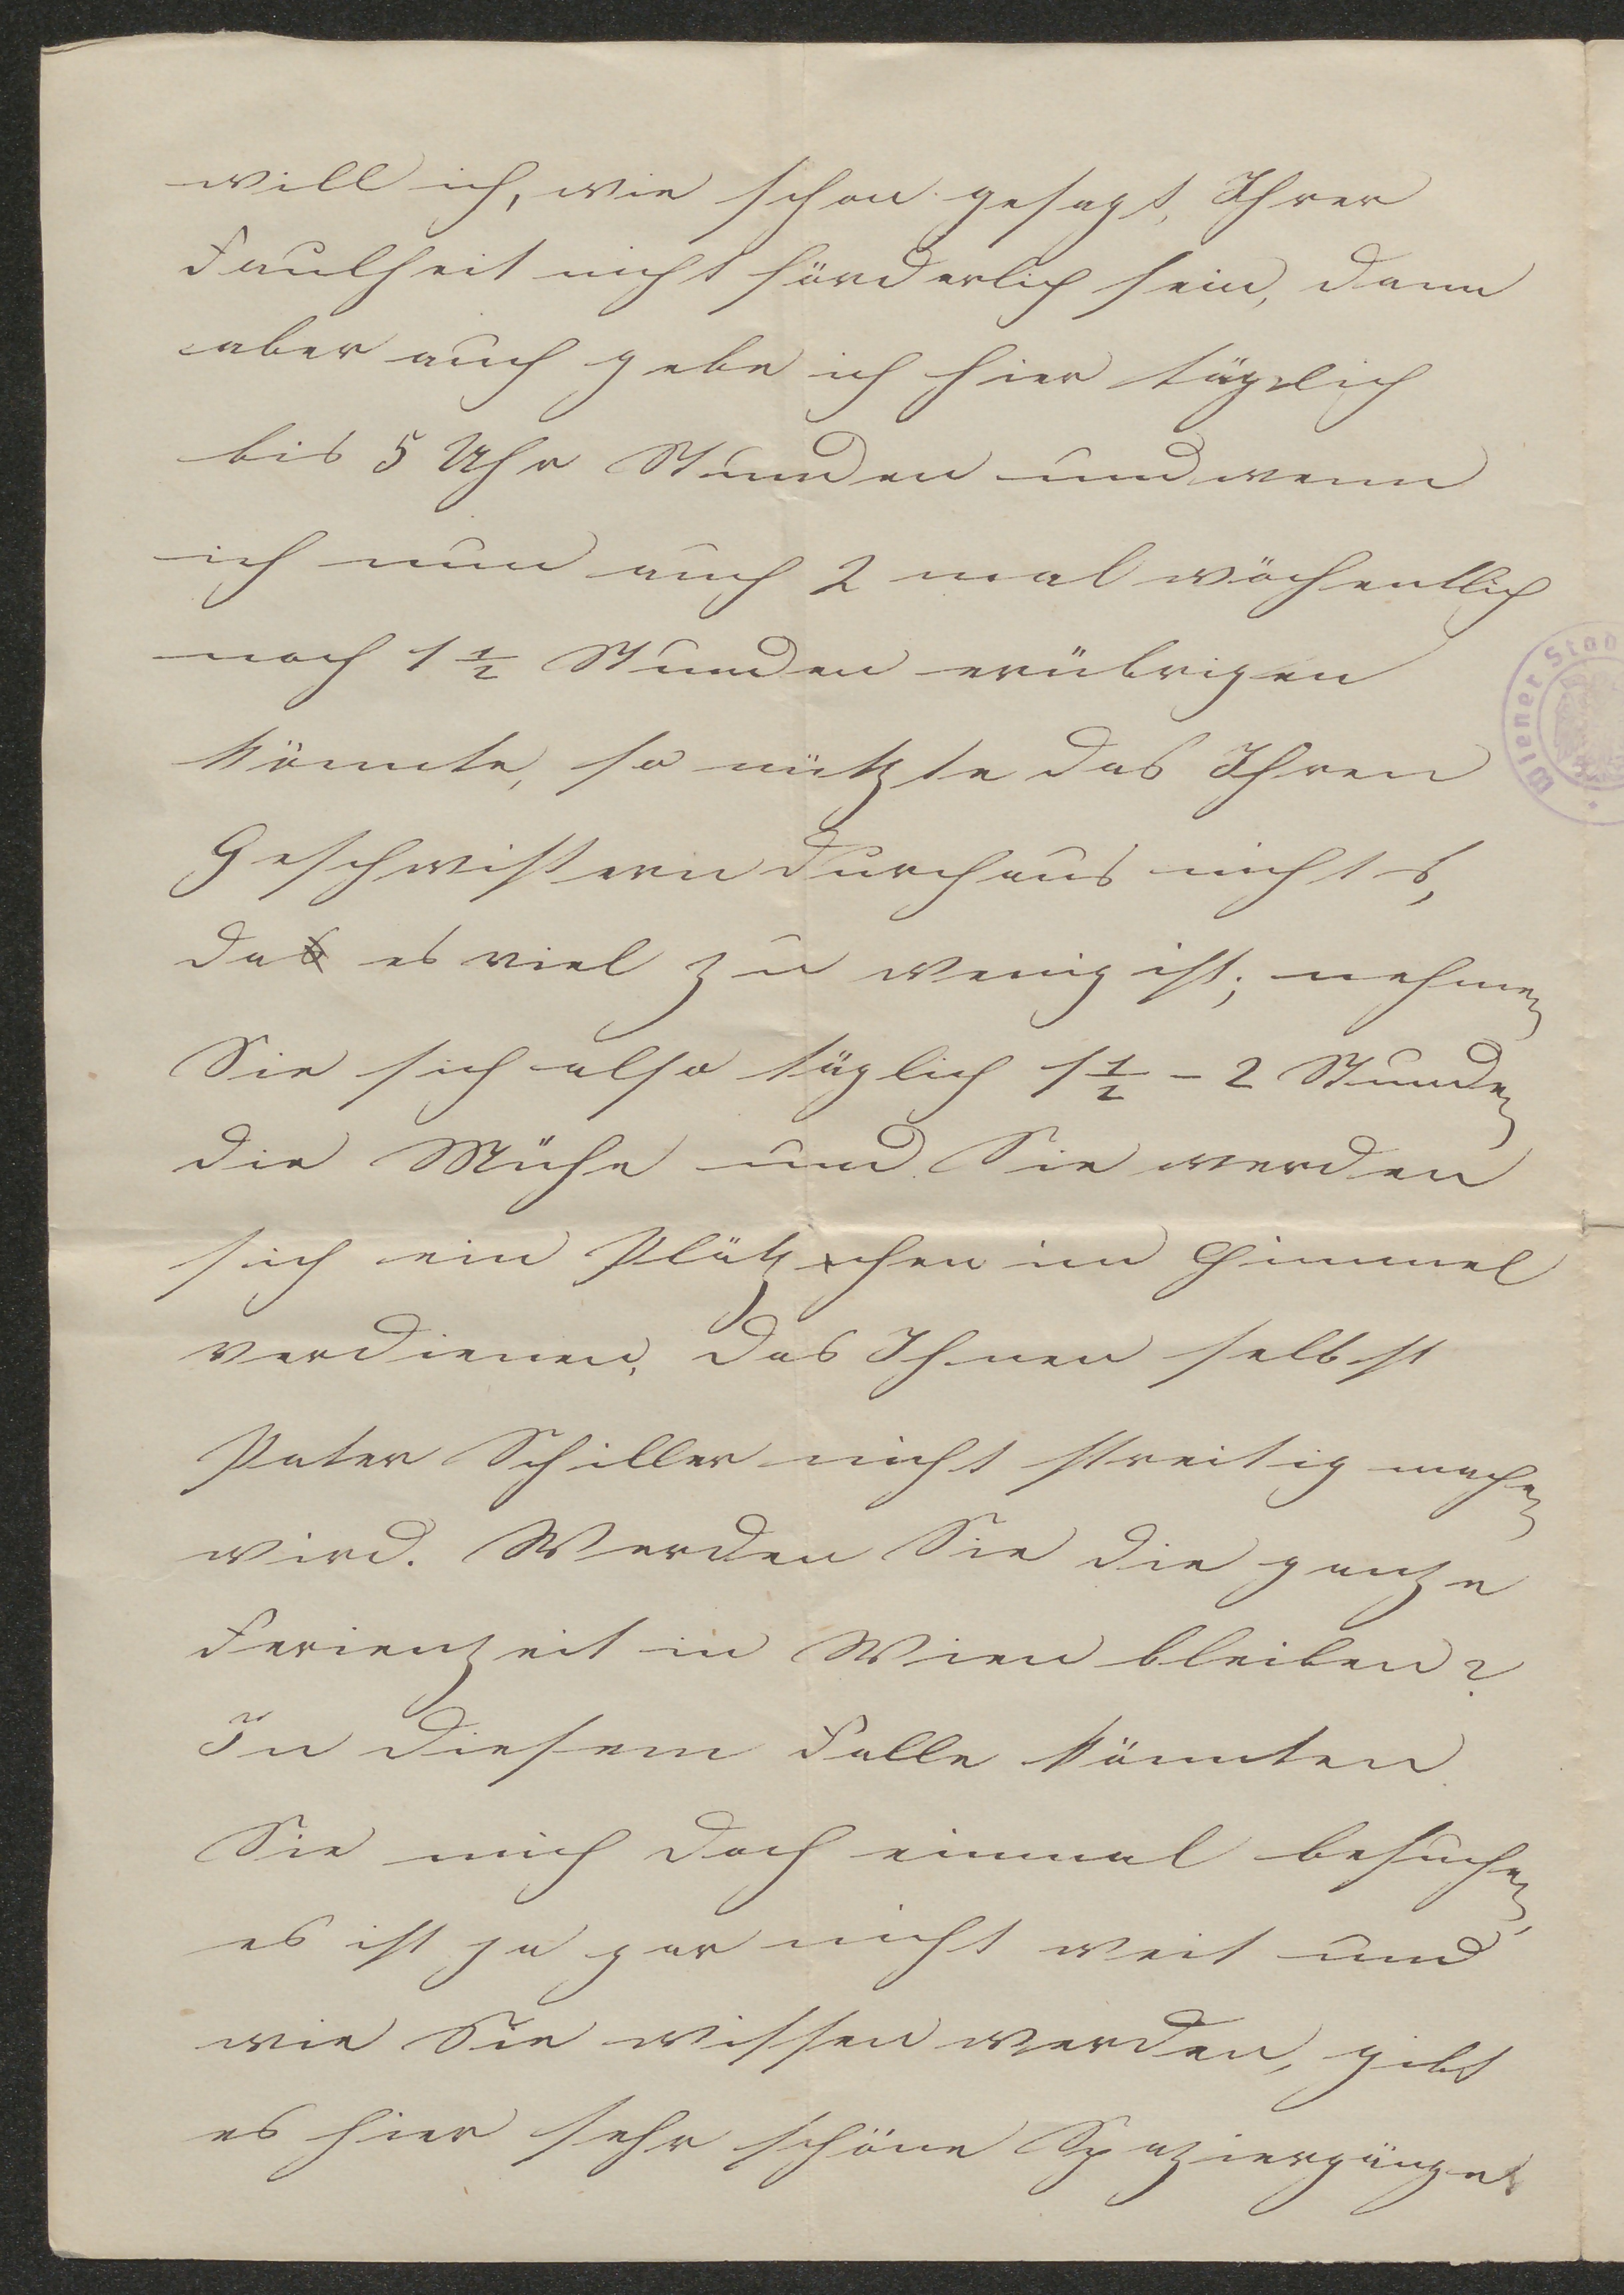 will ich, wie schon gesagt, Ihrer
Faulheit nicht förderlich sein, dann
aber auch gebe ich hier täglich
bis 5 Uhr Stunden und wenn
ich nun auch 2 mal wöchentlich
noch 1 1/2 Stunden erübrigen
könnte, so nützte das Ihren
Geschwistern durchaus nichts,
da es viel zu wenig ist; nehmen
Sie sich also täglich 1 1/2 - 2 Stunden
die Mühe und Sie werden
sich ein Plätzchen im Himmel
verdienen, das Ihnen selbst
Pater Schiller nicht streitig machen
wird. Werden Sie die ganze
Ferienzeit in Wien bleiben?
In diesem Falle könnten
Sie mich doch einmal besuchen,
es ist ja gar nicht weit und
wie Sie wissen werden, gibt
es hier sehr schöne Spaziergänge
Wiener Stad